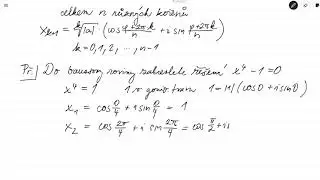 celkem n různých kořenů
x_{k+1} = \sqrt[n]{|a|} · (cos \frac{φ+2πk}{n} + i sin \frac{φ+2πk}{n})
k = 0, 1, 2, ..., n-1
Př.: Do Gaussovy roviny zakreslete řešení x^4 - 1 = 0
x^4 = 1 1 v goniom. tvaru 1 = |1| (cos 0 + i sin 0)
x_1 = cos \frac{0}{4} + i sin \frac{0}{4} = 1
x_2 = cos \frac{2π}{4} + i sin \frac{2π}{4} = cos \frac{π}{2} + i s